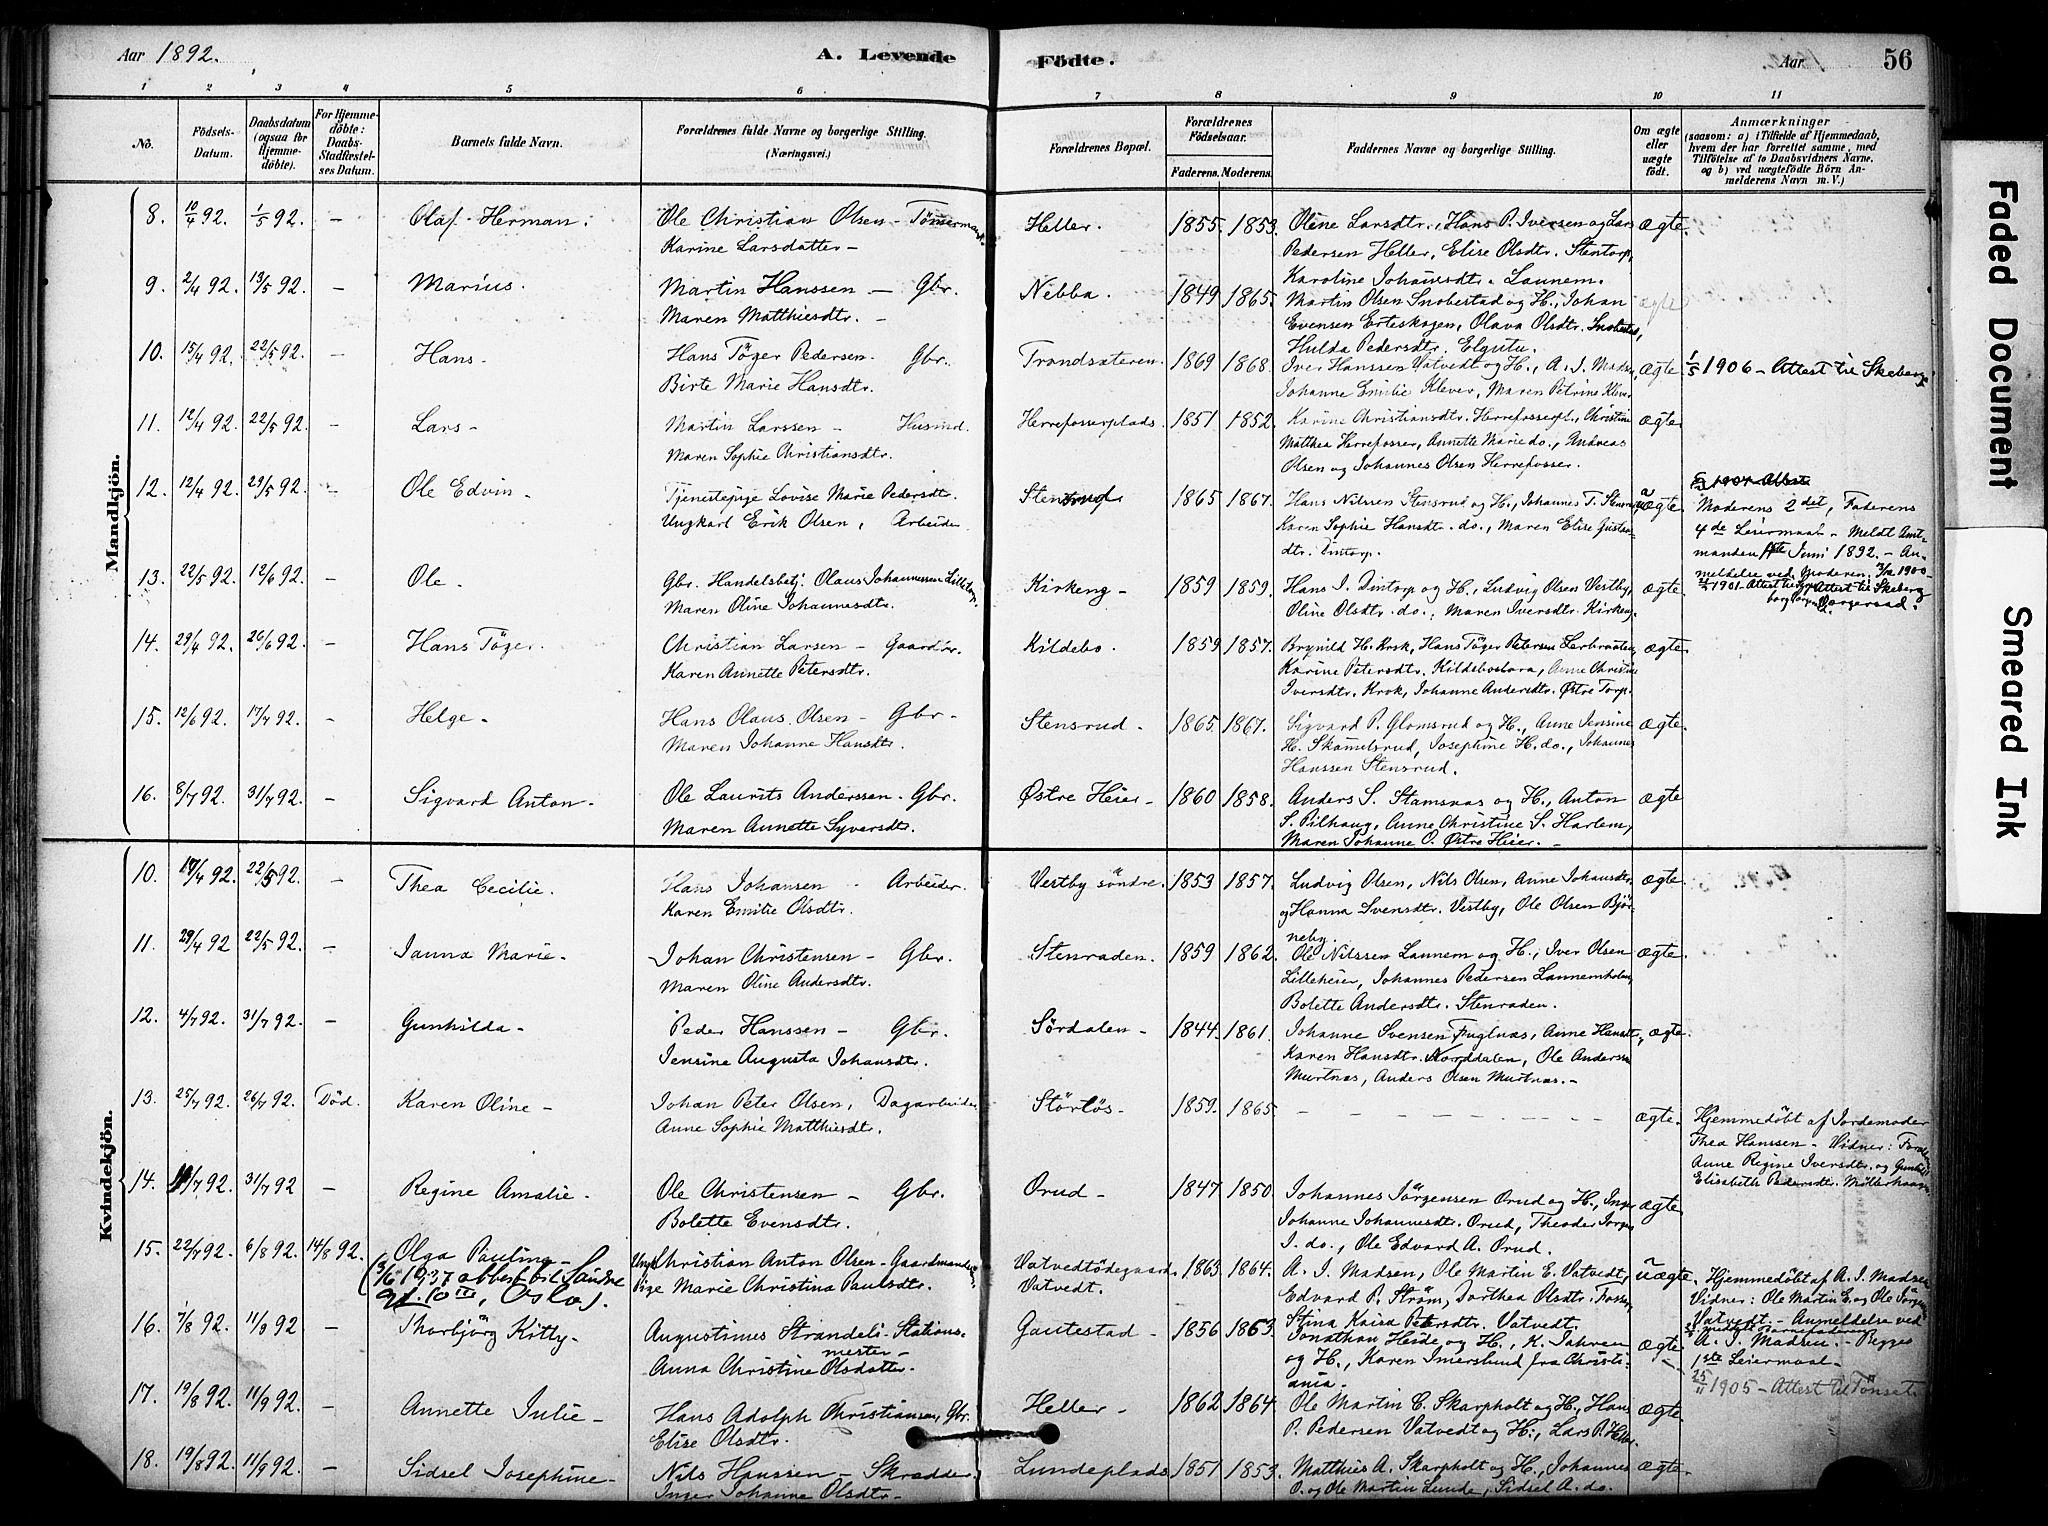 Aar 1892.
A. Levende
Födte.
Aar
56
1 2 3 4 5 6 7 8 9 10 11
No.
Födsels-Datum.
Daabsdatum (ogsaa for Hjemme-döbte).
For Hjemme-döbte: Daabs-Stadfæstel-ses Datum.
Barnets fulde Navn.
Forældrenes fulde Navne og borgerlige Stilling.
(Næringsvei.)
Forældrenes Bopæl.
Forældrenes Födselsaar.
Faderens. Moderens.
Faddernes Navne og borgerlige Stilling.
Om ægte eller uægte födt.
Anmærkninger
(saasom: a) i Tilfælde af Hjemmedaab,
hvem der har forrettet samme, med
Tilföielse af to Daabsvidners Navne,
og b) ved uægtefödte Börn An-
melderens Navn m. V.)
Mandkjön.
8. 10/4 92. 1/5 92. – Olaf Herman. Ole Christian Olsen – Tömmermand. Heller. 1855. 1853. Oline Larsdtr., Hans P. Iversen og Lars ægte.
Karine Larsdatter – Pedersen Heller, Elise Olsdtr. Stentorp,
Karoline Johansdtr. Launem.
9. 2/4 92. 13/5 92. – Marius. Martin Hanssen – Gbr. Nebba. 1849 1865. Martin Olsen Snobestad og H., Johan ægte
Maren Matthiesdtr. – Evensen Erteskogen, Olava Olsdtr. Snobestad,
Hulda Pedersdtr. Elgutu.
10. 15/4 92. 22/5 92. – Hans – Hans Töger Pedersen. Gbr. Trandsæteren. 1869 1868. Iver Hanssen Vatvedt og H., A. I. Madsen, ægte 1/5 1906 – Attest til Skeberg
Birte Marie Hansdtr. Johanne Emilie Klever, Maren Petrine Klever
11. 12/4 92. 22/5 92. – Lars – Martin Larssen – Husmd. Herrefosserplads. 1851 1852. Karine Christiansdtr. Herrefosserpl., Christine ægte
Maren Sophie Christiansdtr. Matthea Herrefosser, Annette Marie do., Andreas
Olsen og Johannes Olsen Herrefosser.
12. 12/4 92. 29/5 92. – Ole Edvin – Tjenestepige Lovise Marie Pedersdtr. Stensrud 1865 1867. Hans Nilssen Stensrud og H., Johannes T. Stensrud, uægte
Ungkarl Erik Olsen, Arbeider Karen Sophie Hansdtr. do., Maren Elise Gusts-
dtr. Dintorp.
1901 Attest
Moderens 2 det, Faderens
4 de Leiermaal – Meldt Amt-
manden Juni 1892. – An-
meldelse ved Moderen.
13. 22/5 92. 12/6 92. – Ole. Gbr. Handelsbetj. Olaus Johannessen Lilletorp. Kirkeng – 1859 1859. Hans I. Dintorp og H., Ludvig Olsen Vestby, ægte.
Maren Oline Johannesdtr. Oline Olsdtr. do., Maren Iversdtr. Kirkeng.
1901 Attest til
Attest til Skeberg
14. 29/4 92. 26/6 92. – Hans Töger. Christian Larsen – Gaardbr. Kildebo. 1859 1857. Brynild H. Krok, Hans Töger Petersen Lerbraaten, ægte.
Karen Annette Petersdtr. Karine Petersdtr. Kildebobara, Anne Christine
Iversdtr. Krok, Johanne Andersdtr. Østre Torp.
15. 12/6 92. 17/7 92. – Helge – Hans Olaus Olsen – Gbr – Stensrud – 1865. 1867. Sigvard P. Glomsrud og H., Anne Jensine ægte.
Maren Johanne Hansdtr. H. Skamelsrud, Josephine H. do., Johannes
Hanssen Stensrud.
16. 8/7 92. 31/7 92. – Sigvard Anton – Ole Laurits Anderssen – Gbr. Østre Heier – 1860 1858. Anders S. Stamsnæs og H., Anton ægte
Maren Annette Syversdtr. S. Pilhaug, Anne Christine S. Harlem,
Maren Johanne O. Østre Heier. –
Kvindekjön.
10. 17/4 92. 22/5 92. – Thea Cecilie. Hans Johansen – Arbeider. Vestby söndre. 1853 1857. Ludvig Olsen, Nils Olsen, Anne Johansdtr. ægte.
Karen Emilie Olsdtr. og Hanna Svensdtr. Vestby, Ole Olsen Björ-
neby.
11. 29/4 92 22/5 92. – Janna Marie – Johan Christensen – Gbr. Stenraden. 1859 1862. Ole Nilssen Launem og H., Iver Olsen ægte.
Maren Oline Andersdtr. Lilleheier, Johannes Pedersen Launemholen,
Bolette Andersdtr. Stenraden.
12. 4/7 92. 31/7 92. – Gunhilda – Peder Hanssen – Gbr. Sördalen – 1844 1861. Johanne Svensen Fuglnæs, Anne Hansdtr., ægte.
Jensine Augusta Johansdtr. Karen Hansdtr. Norddalen, Ole Andersen
Murtnæs, Anders Olsen Murtnæs. –
13. 25/7 92. 26/7 92. Död. Karen Oline – Johan Peter Olsen, Dagarbeider Störlös – 1859. 1865. – – – ægte. Hjemmedöbt af Jordemoder
Anne Sophie Matthiesdtr. Thea Hanssen – Vidner:
Anne Regine Iversdtr. og Gunhild
Elisabeth Pedersdtr. Möllerhaugen
14. 11/7 92. 31/7 92 – Regine Amalie – Ole Christensen – Gbr. Orud – 1847 1850. Johannes Jörgensen Orud og H., Inger ægte
Bolette Evensdtr. Johanne Johannesdtr. Orud, Theodor Jörgen
I. do., Ole Edvard A. Orud.
15. 22/7 92. 6/8 92. 14/8 92. Olga Pauline – Ungk. Christian Anton Olsen – Gaardmandssön Vatvedtödegaard 1863 1864. A. I. Madsen, Ole Martin E. Vatvedt, uægte Hjemmedöbt af A. I. Madsen
(3/6 1937 attest til Söndre Pige Marie Christina Paulsdtr. Vatvedt. Edvard P. Ström, Dorthea Olsdtr. Fosser, Vidner: Ole Martin E. og Ole Jörgen
gt. 10 III, Oslo). Stina Kaisa Petersdtr. Vatvedt. Vatvedt – Anmeldelse ved
A. I. Madsen. – Begges
1ste Leiermaal –
16. 7/8 92. 11/9 92 – Thorbjörg Kitty – Augustinus Strandeli – Stations- Gautestad – 1856 1863. Jonathan Heide og H., K. Jahren ægte.
mester –
Anna Christine Olsdatter – og H., Karen Imerslund fra Christi-
ania –
25/11 1905 – Attest til Tönset
17. 19/8 92. 11/9 92. – Annette Julie – Hans Adolph Christiansen, Gbr. Heller – 1862 1864. Ole Martin C. Skarpholt og H., Hans ægte.
Elise Olsdtr. P. Pedersen Vatvedt og H., Lars P. Heller
18. 19/8 92. 11/9 92. – Sidsel Josephine – Nils Hanssen – Skrædder Lundeplads 1851 1853. Matthies A. Skarpholt og H., Johannes ægte.
Inger Johanne Olsdtr – O. og Ole Martin Lunde, Sidsel A. do.
Faded Document
Smeared Ink